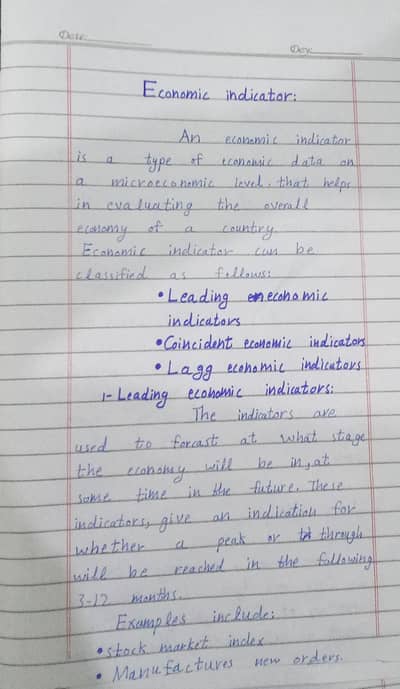 Date
Day
Economic indicator:
An economic indicator
is a type of economic data on
a microeconomic level. that helps
in evaluating the overall
economy of a country.
Economic indicator can be
classified as follows:
• Leading economic
indicators
• Coincident economic indicators
• Lagg economic indicators
1- Leading economic indicators:
The indicators are
used to forcast at what stage
the economy will be in, at
some time in the future. These
indicators, give an indication for
whether a peak or through
will be reached in the following
3-12 months.
Examples include:
• stock market index
• Manufactures new orders.